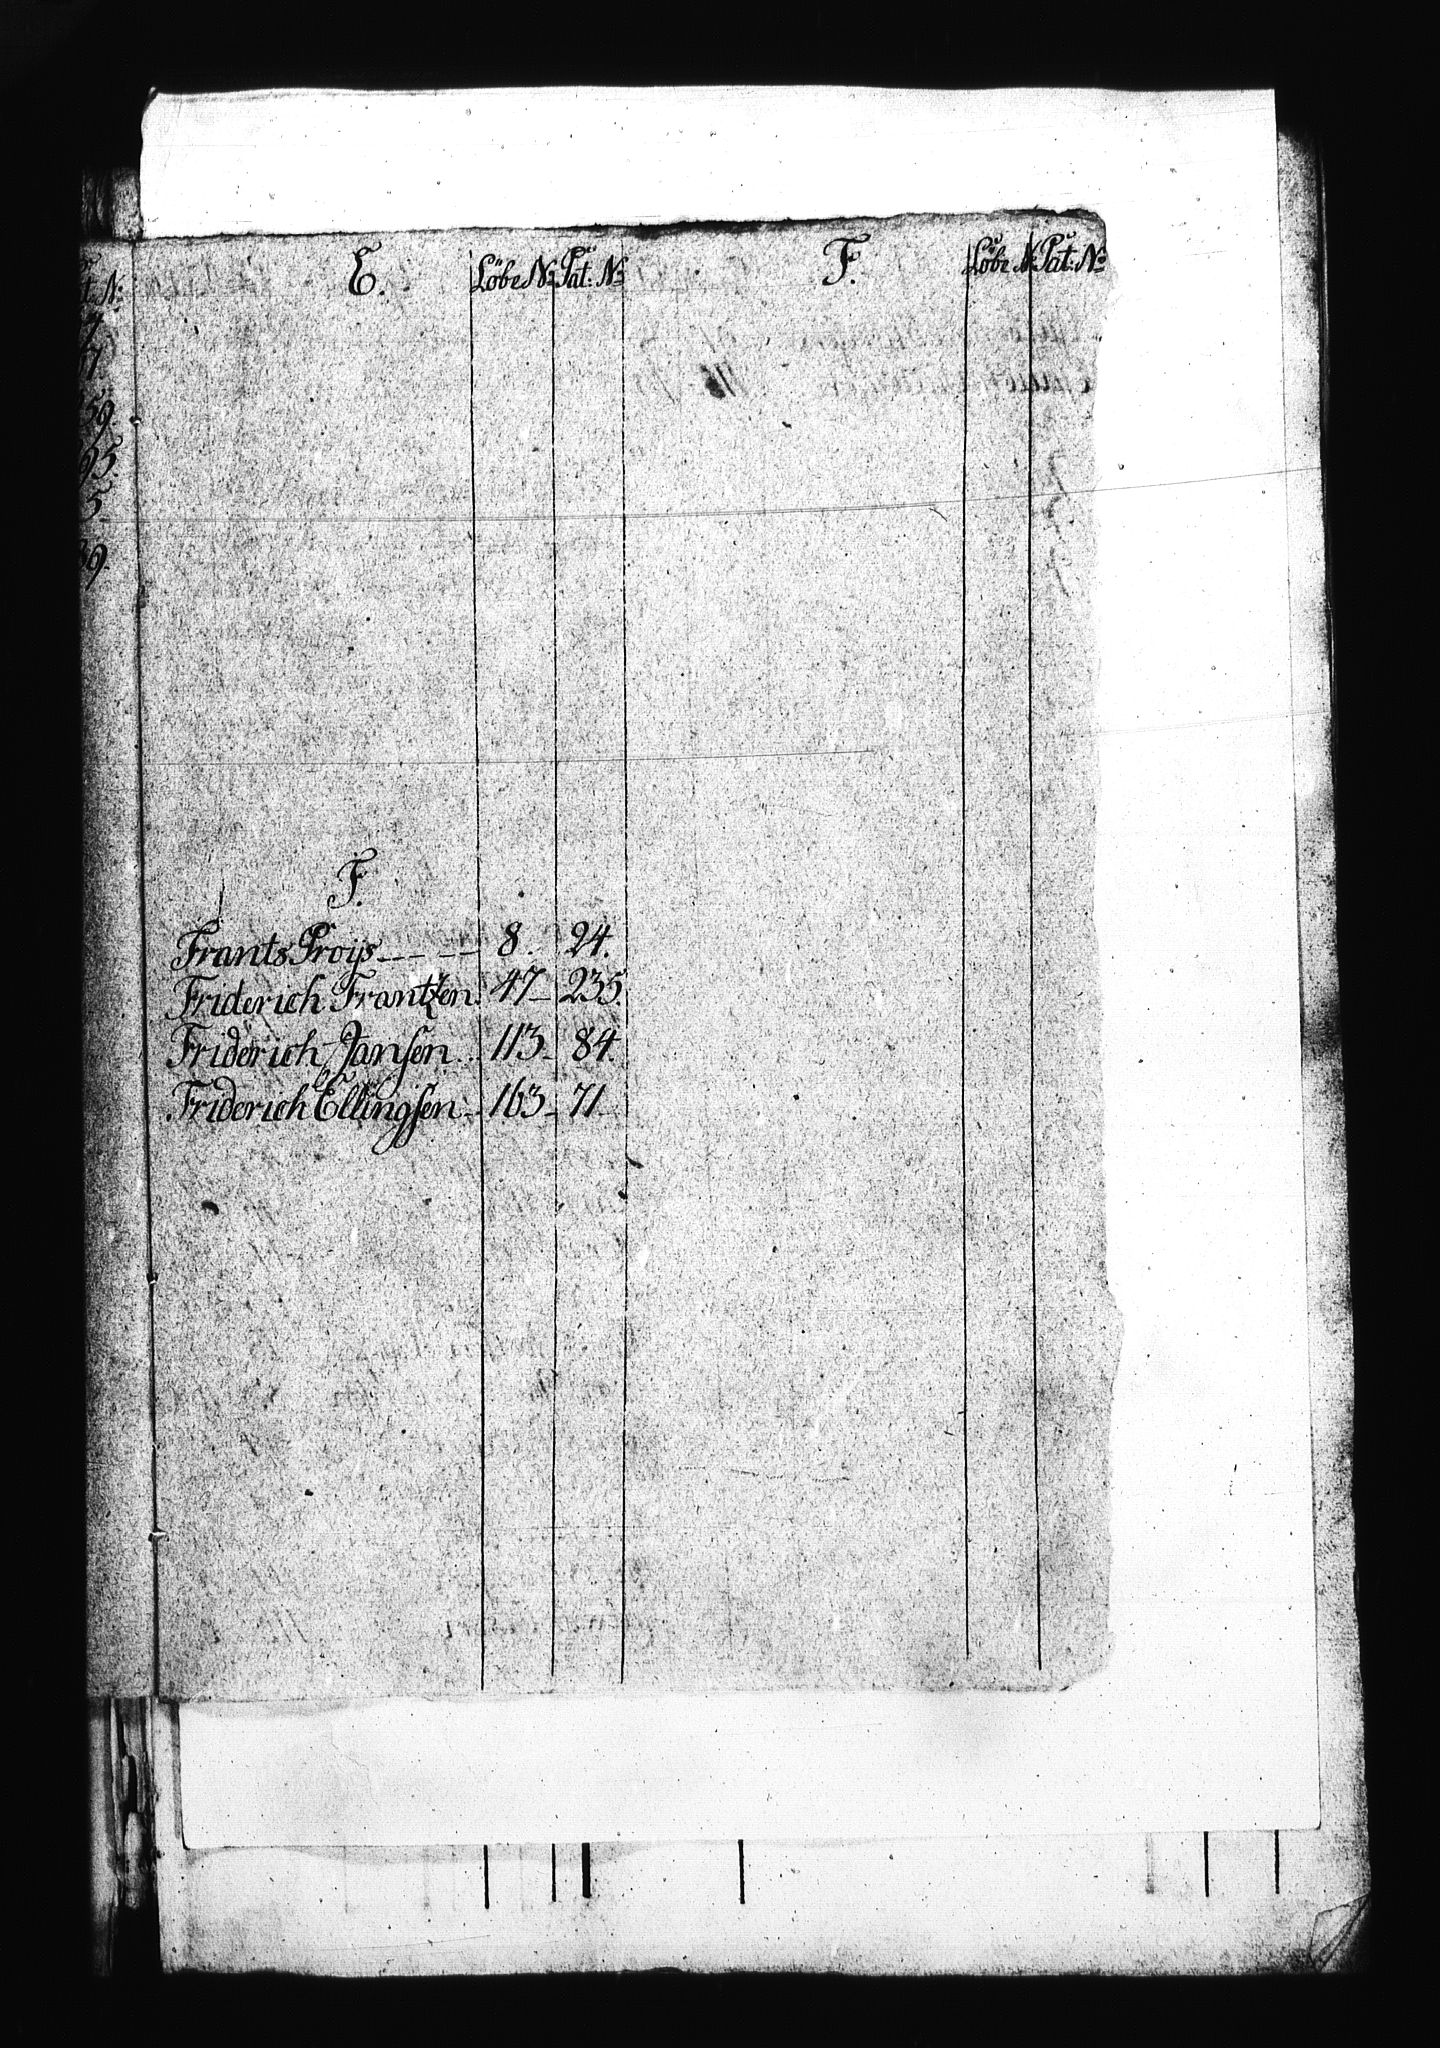 E. Löbe No Pat: No F. Löbe No Pat: No
t: No
59.
95.
5
39.
F.
Frants Proijs 8. 24.
Friderich Frantzen. 47 235.
Friderich Jansen 113 84.
Friderich Ellingsen 163 71